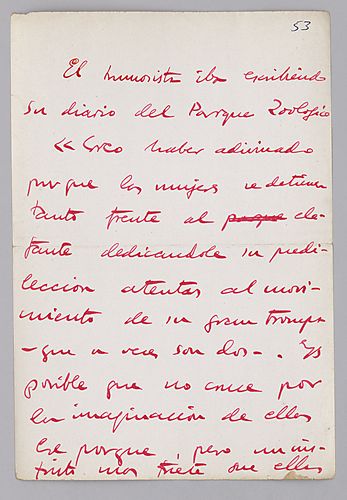 53
El humorista iba escribiendo
su diario del Parque Zoologico
« Creo haber adivinado
porque las mujeres se detienen
tanto frente al parque ele-
fante dedicandole su predi-
leccion atentas al movi-
miento de su gran trompa
- que a veces son dos - . Es
posible que no cruce por
la imaginacion de ellas
ese porque pero un ins-
tinto mas que ellas